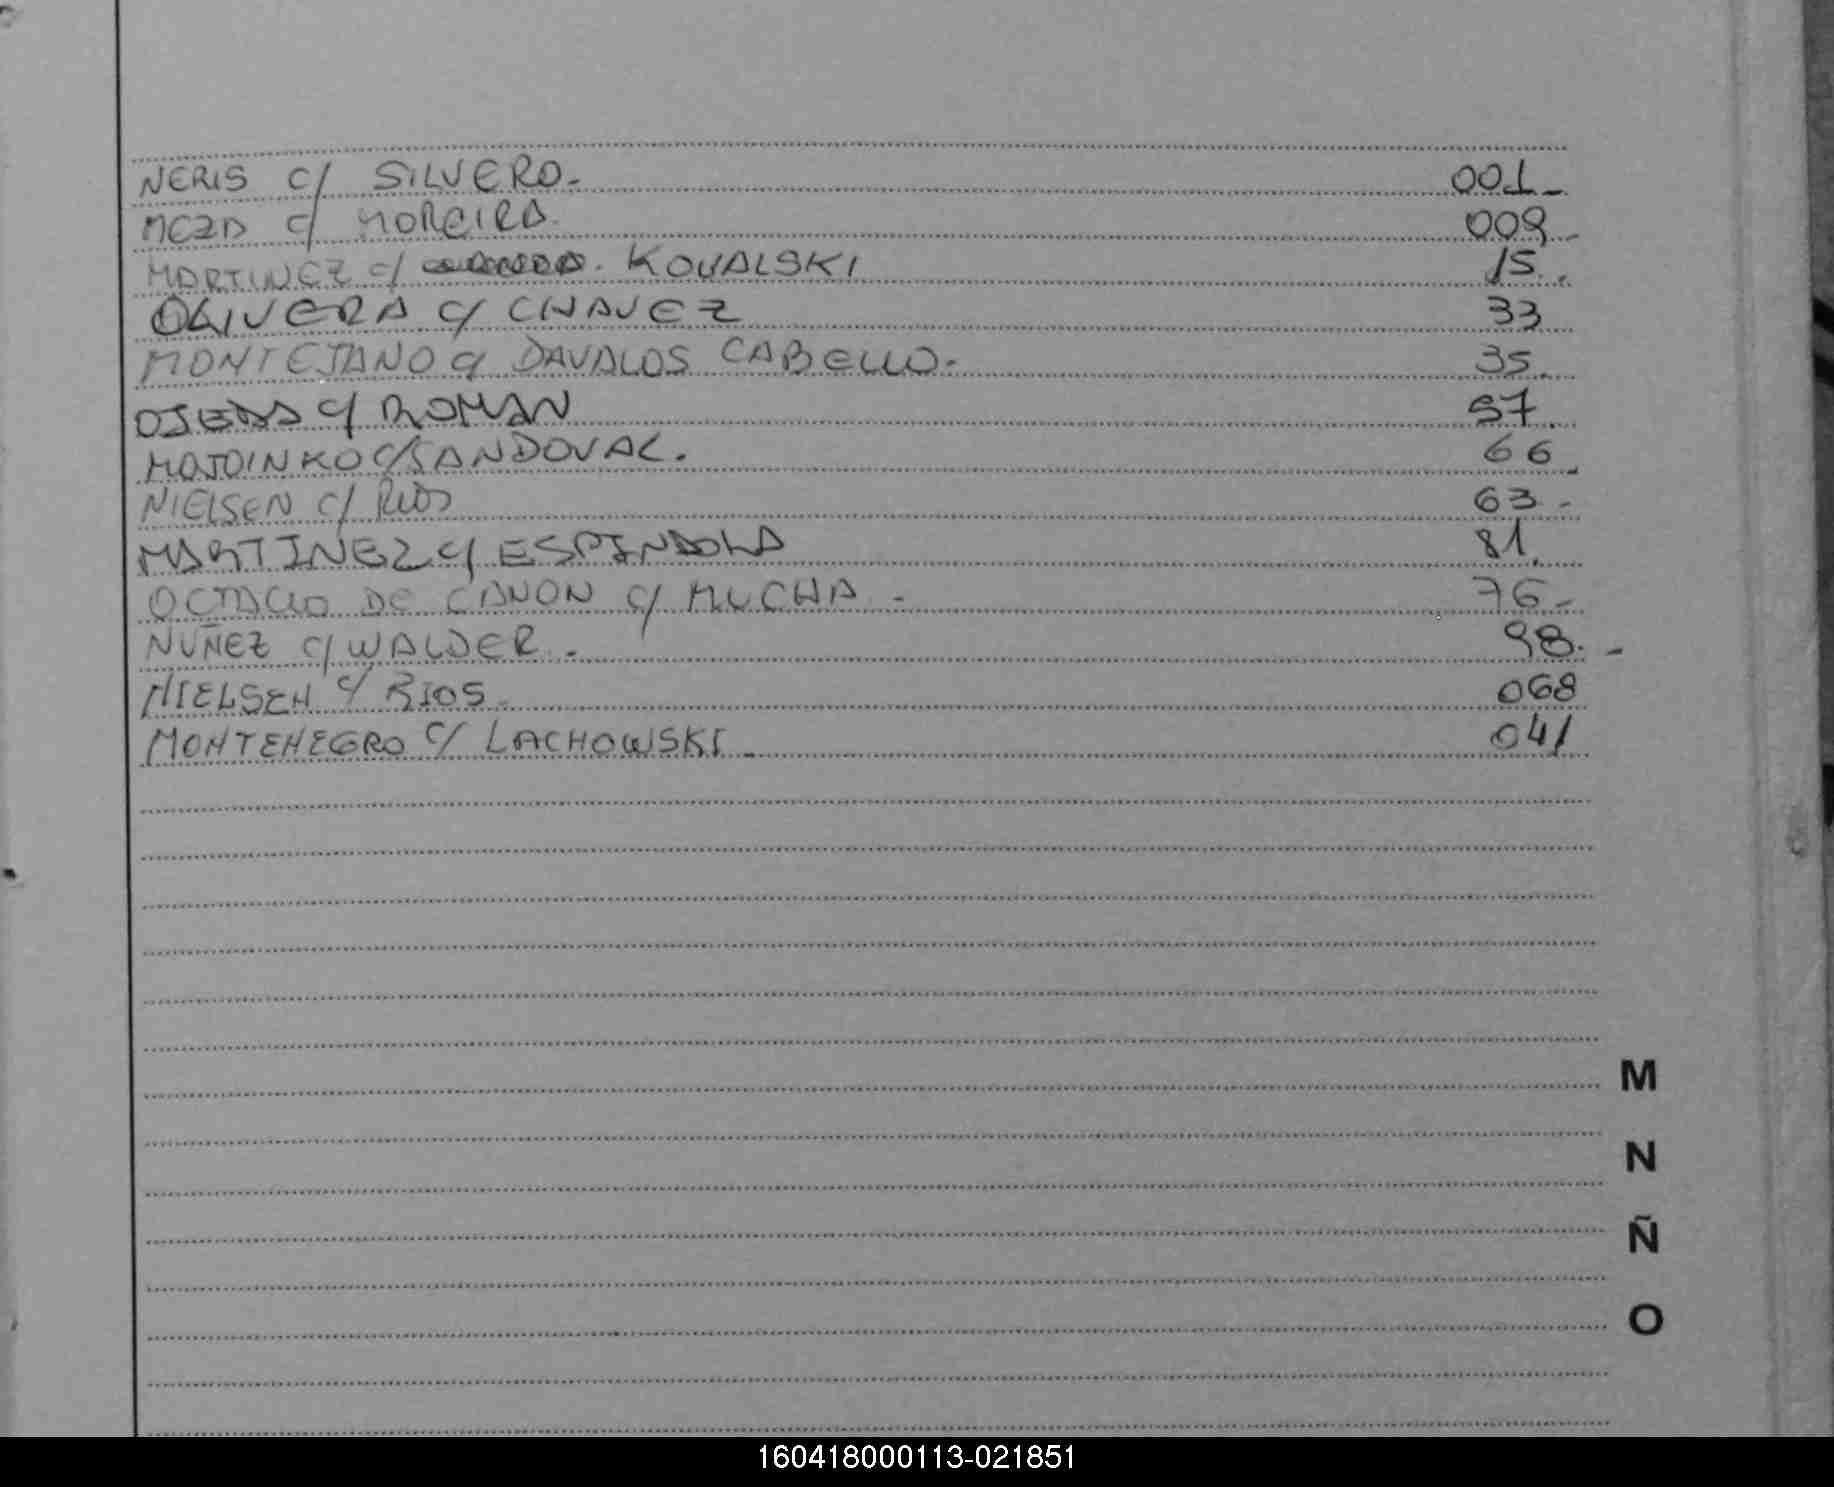 NERIS c/ SILVERO.- 001_
MEZA c/ MOREIRA. 009_
MARTINEZ c/ KOVALSKI 15.
OLIVERA c/ CHAVEZ 33
MONTEJANO c/ DAVALOS CABELLO.- 35.
OJEDA c/ ROMAN 57.
MOJOINKO c/ SANDOVAL. 66.
NIELSEN c/ RIOS 63.-
MARTINEZ c/ ESPINDOLA 81.
DE CANON c/ MUCHA.- 76-
NUÑEZ c/ WALDER.- 98.-
NIELSEN c/ RIOS.- 068
MONTENEGRO c/ LACHOWSKI_ 041
M
N
Ñ
O
160418000113-021851